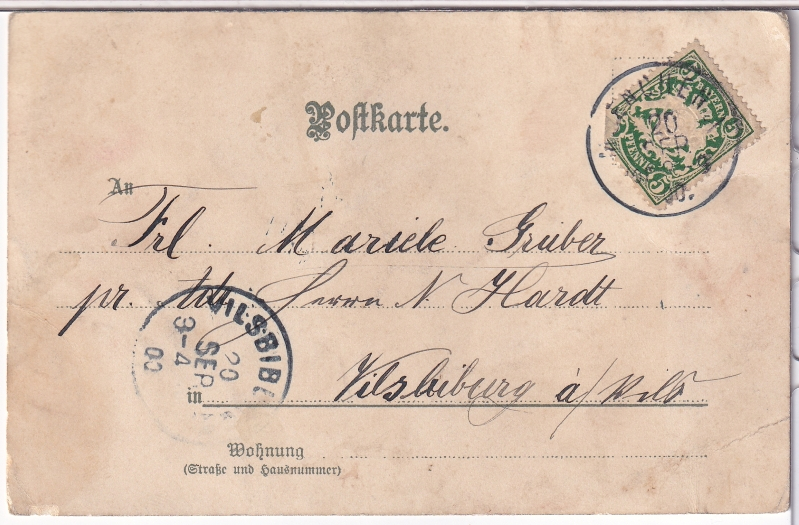 Postkarte.
An
Frl. Mariele Gruber
pr. Adr. Herrn N. Hardt
in Vilsbiburg a/Vils
Wohnung
(Straße und Hausnummer)
VILSBIB
20
SEP
3-4
00
20
SEP
00.
BAYERN
PFENNIG
5